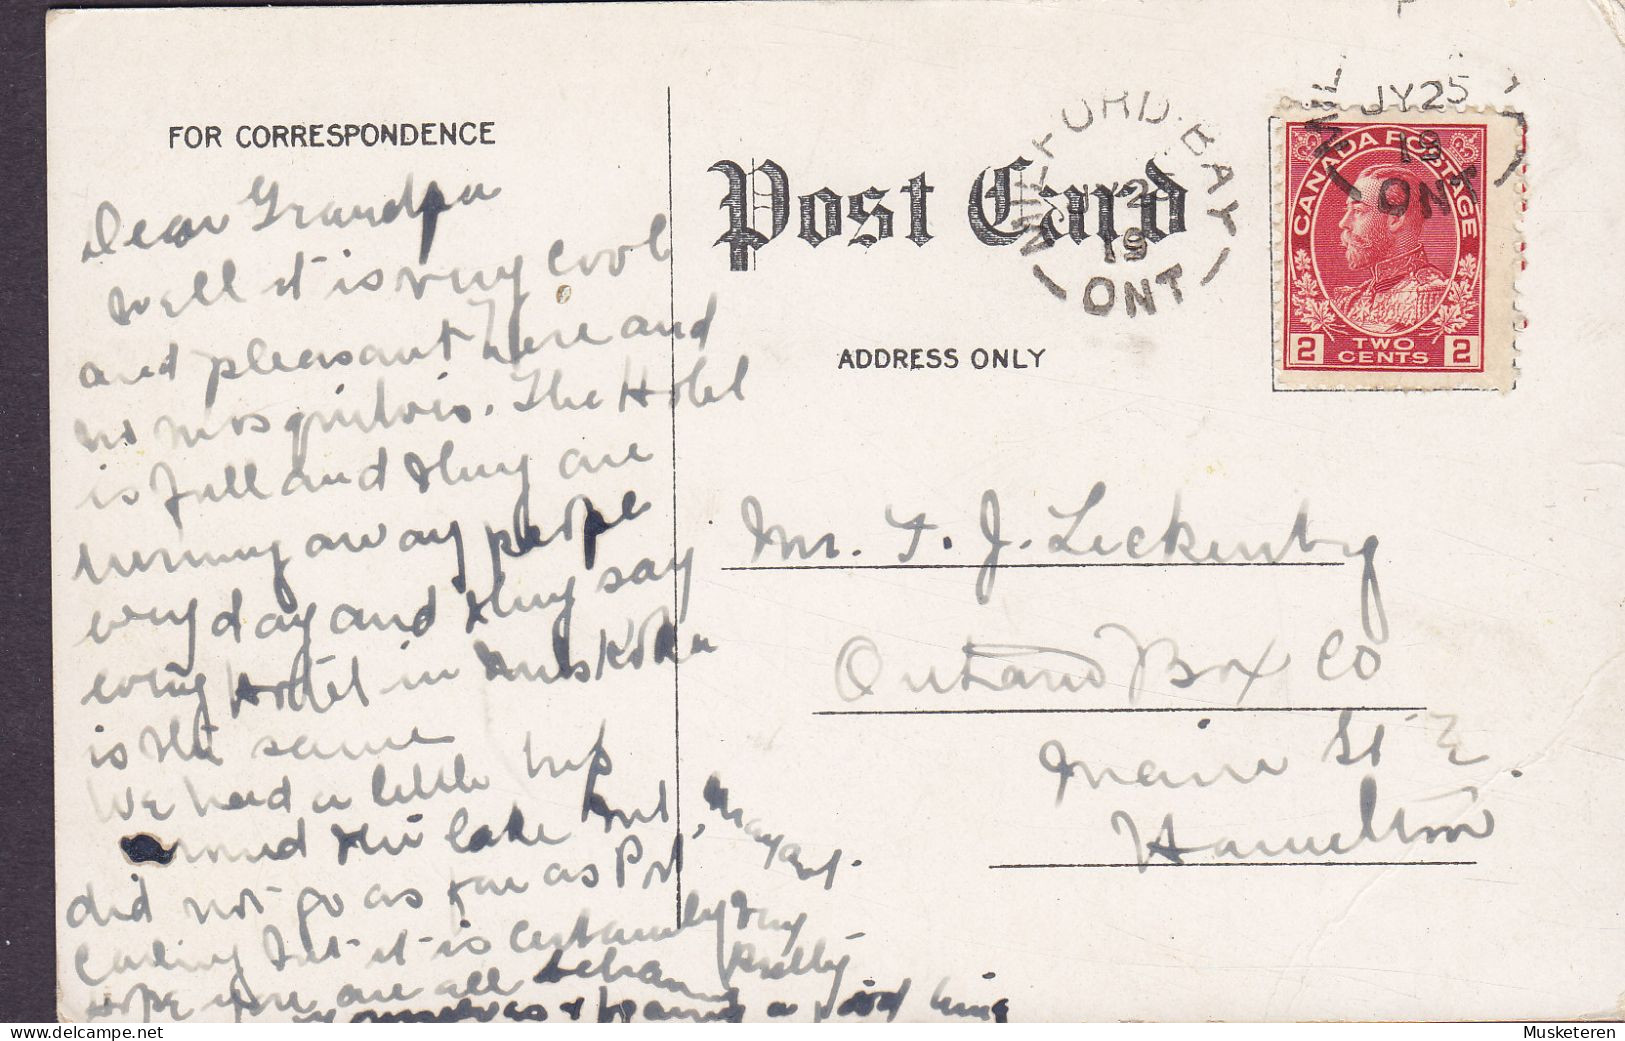 FOR CORRESPONDENCE
Dear Grandpa
Well it is very cool
and pleasant here and
no mosquitois. The Hotel
is full and they are
turning away people
every day and they say
every Hotel in Muskoka
is the same
We had a little trip
around the lake but
did not go as far as Prt
Carling but it is certainly very
pretty
Hope you are all behaving
yourselves & having a good time
Margaret.
Post Card
ADDRESS ONLY
MILFORD-BAY
JY 25
19
ONT
MIL
JY 25
19
ONT
CANADA POSTAGE
2 TWO CENTS 2
Mr. F. J. Leckenby
Ontario Box Co
Main St E.
Hamilton
Musketeren